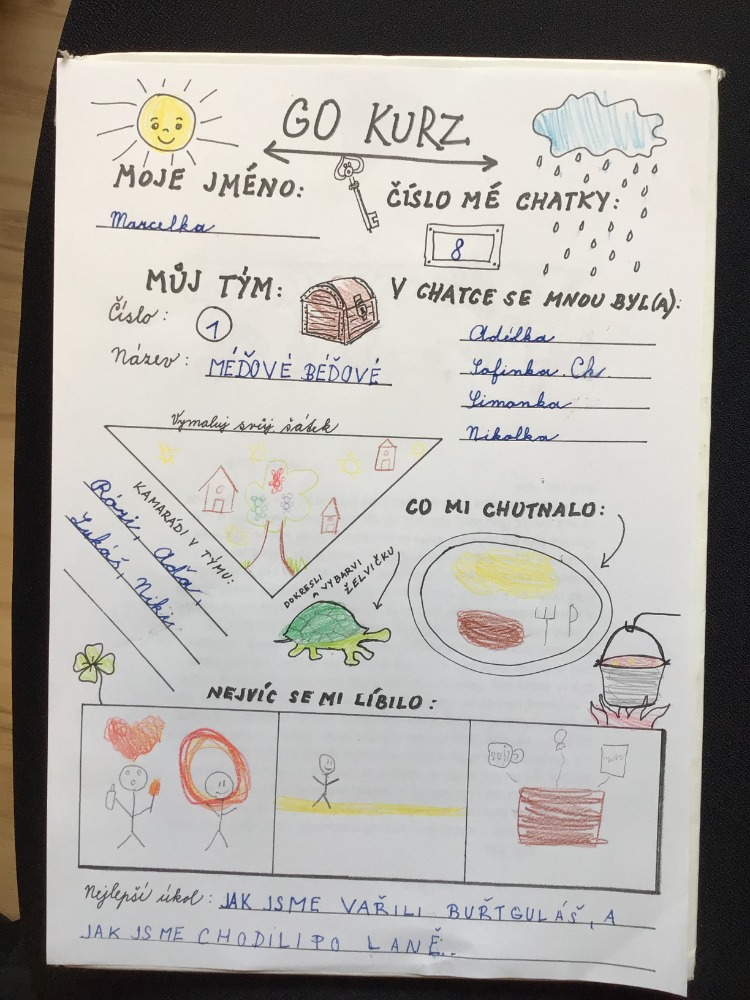 GO KURZ
MOJE JMÉNO:
Marcelka
ČÍSLO MÉ CHATKY:
8
MŮJ TÝM:
Číslo:
1
Název:
MÉĎOVÉ BÉĎOVÉ
V CHATCE SE MNOU BYL(A):
Adélka
Sofinka Ch.
Simonka
Nikolka
Vymaluj svůj šátek
KAMARÁDI V TÝMU:
Rózi, Aďa,
Lukáš, Niki
CO MI CHUTNALO:
DOKRESLI
A VYBARVI
ŽELVIČKU
NEJVÍC SE MI LÍBILO:
Nejlepší úkol: JAK JSME VAŘILI BUŘTGULÁŠ, A
JAK JSME CHODILI PO LANĚ.